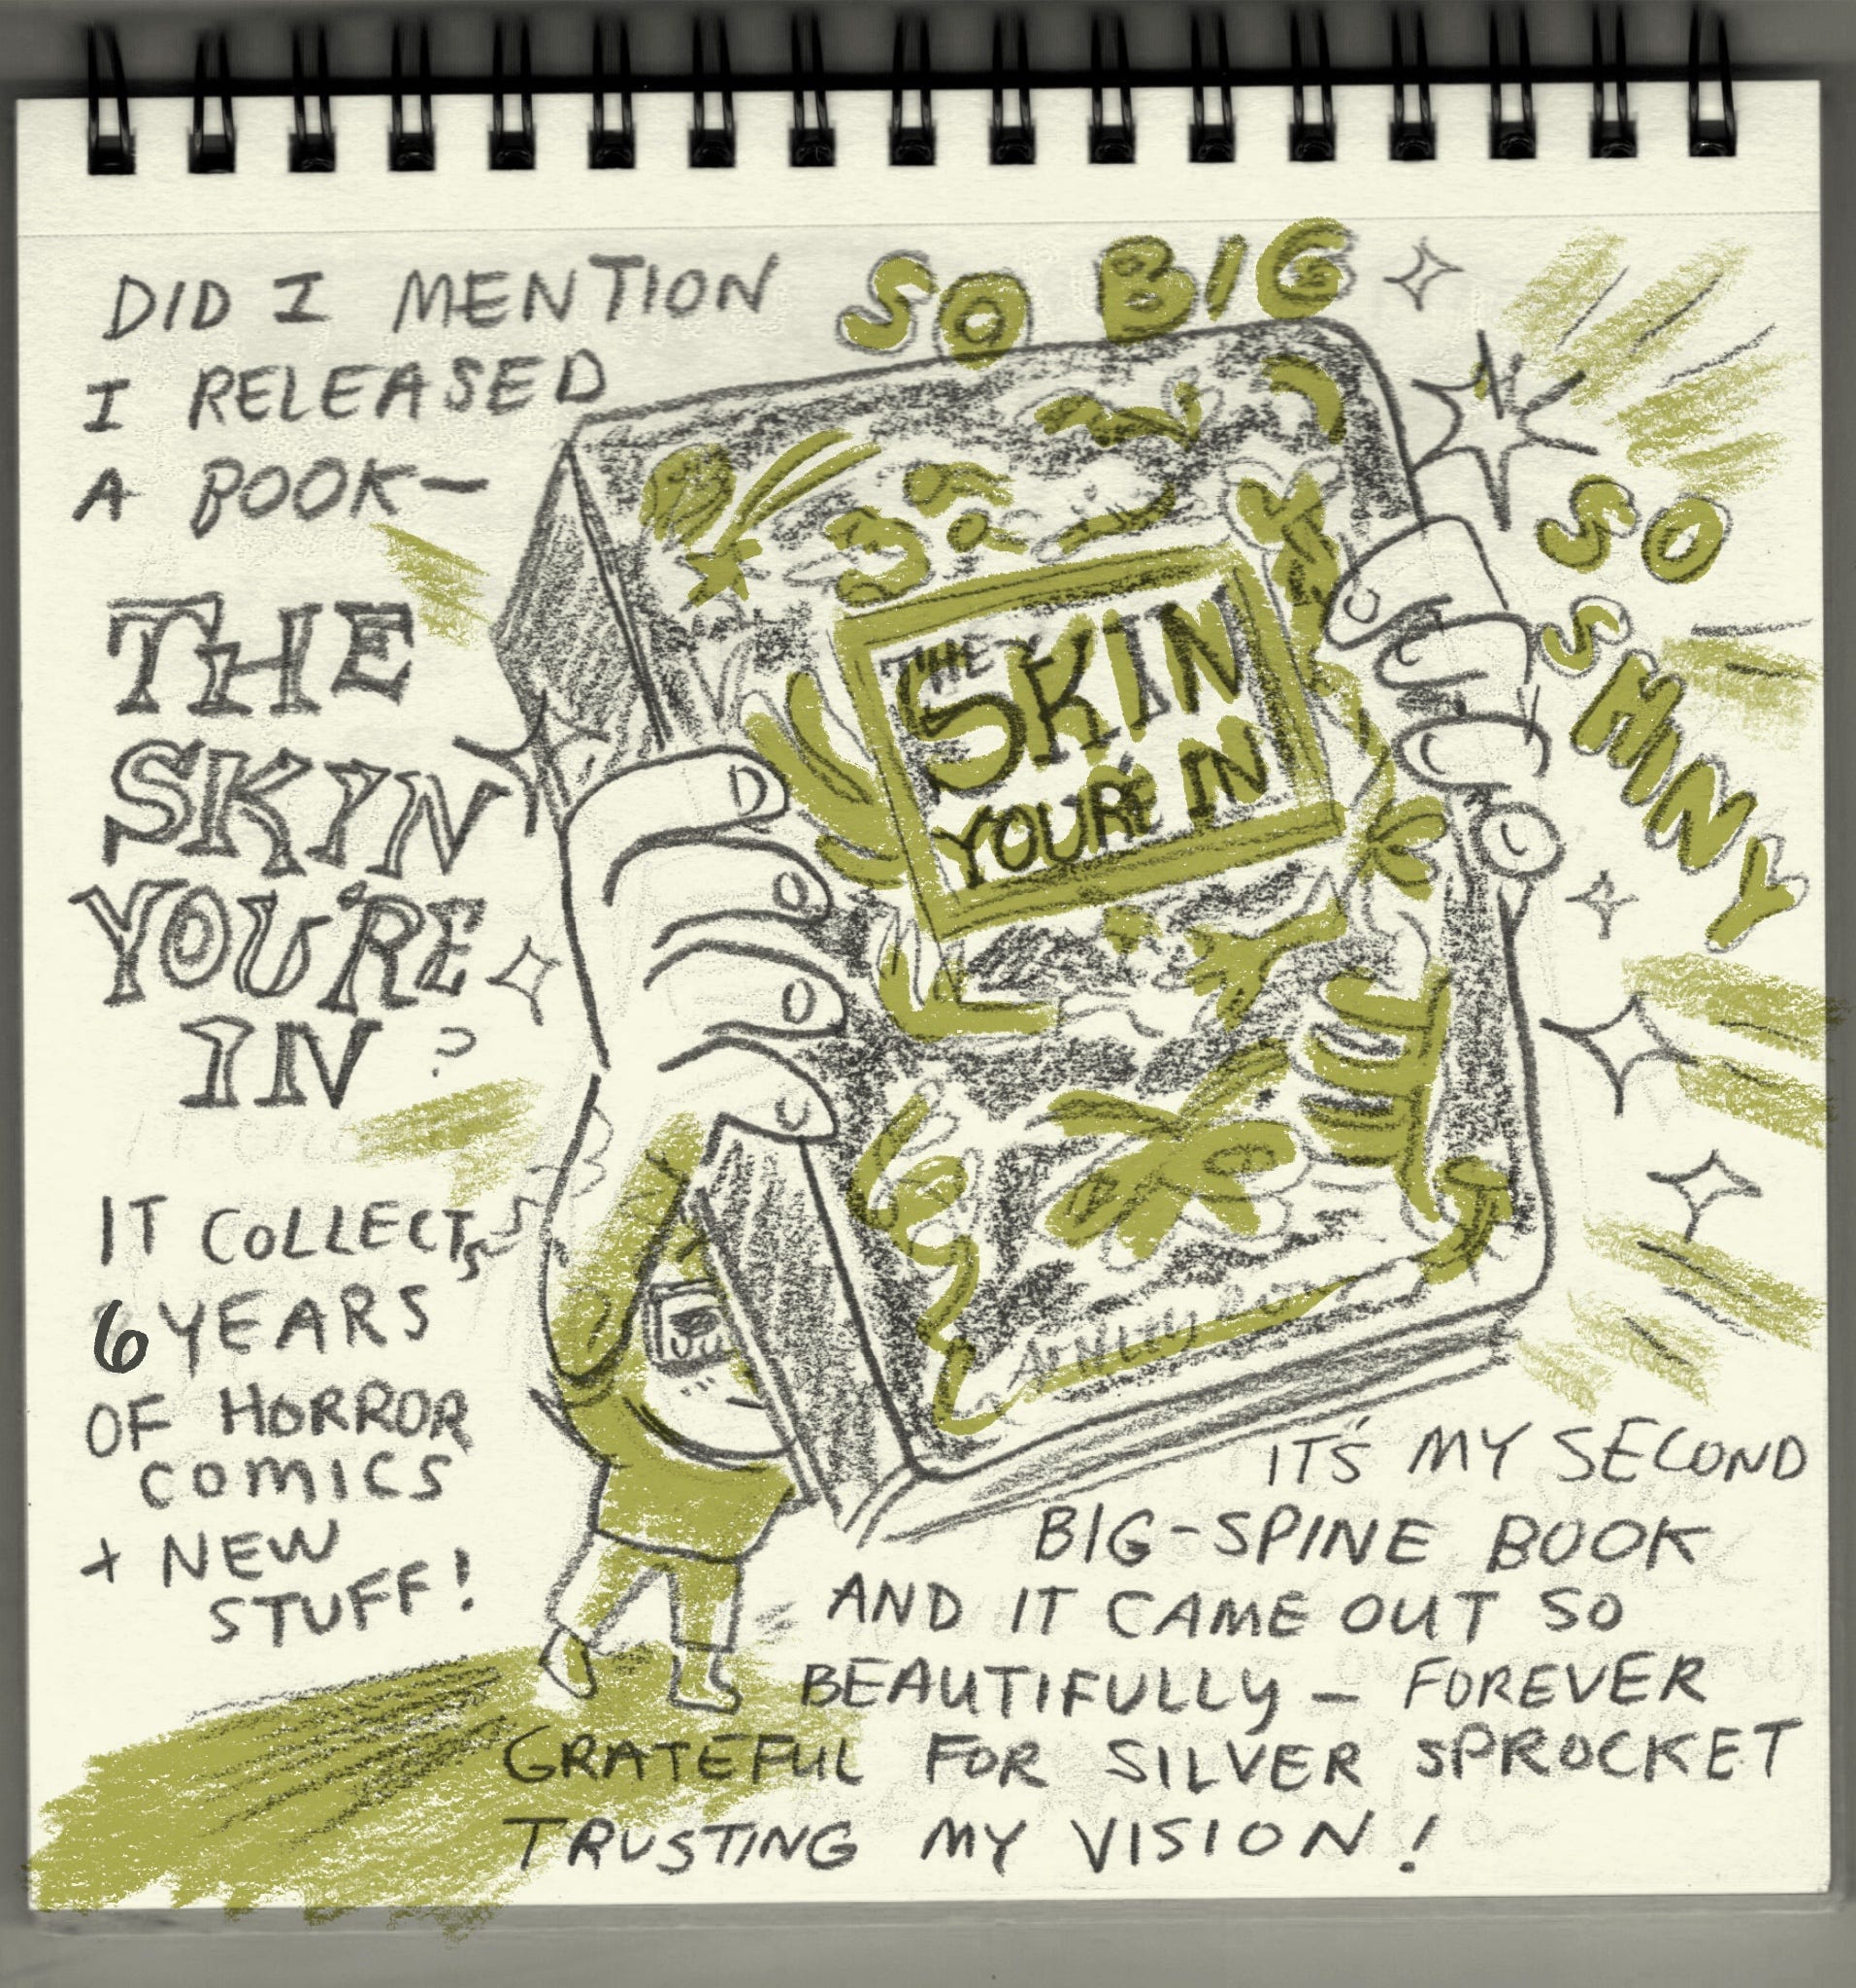 DID I MENTION
I RELEASED
A BOOK—
THE
SKIN
YOU'RE
IN ?
IT COLLECTS
6 YEARS
OF HORROR
COMICS
+ NEW
STUFF!
SO BIG
SO
SHINY
THE
SKIN
YOU'RE IN
IT'S MY SECOND
BIG-SPINE BOOK
AND IT CAME OUT SO
BEAUTIFULLY — FOREVER
GRATEFUL FOR SILVER SPROCKET
TRUSTING MY VISION!